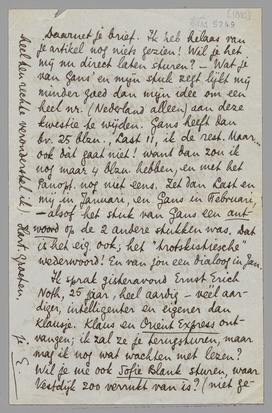 [1935]
M 5249
Daarnet je brief. Ik heb helaas van
je artikel nog niets gezien! Wil je het
mij nu direct laten sturen? – Wat je
van Gans' en mijn stuk zegt lijkt mij
minder goed dan mijn idee om een
heel nr. (Nederland alleen) aan deze
kwestie te wijden. Gans heeft dan
bv. 25 blzn., Last 11, ik de rest. Maar
ook dat gaat niet! want dan zou ik
nog maar 4 blzn hebben, en met het
Panopt. nog niet eens. Zet dan Last en
mij in Januari, en Gans in Februari,
– alsof het stuk van Gans een ant-
woord op de 2 andere stukken was. Dat
is het eig. ook; het "trotskistische"
wederwoord! En van jou een dialoog in Jan.
Ik sprak gisteravond Ernst Erich
Noth, 25 jaar, heel aardig – veel aar-
diger, intelligenter en eigener dan
Klausje. Klaus en Orient Express ont-
vangen; ik zal ze je terugsturen, maar
mag ik nog wat wachten met lezen?
Wil je me ook Sofie Blank sturen, waar
Vestdijk zoo verrukt van is? (niet ge-
heel ten rechte veronderstel ik! Hart. groeten,
je E.